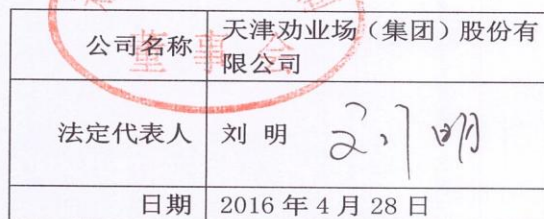 公司名称 天津劝业场（集团）股份有
限公司
董事会
法定代表人 刘 明 刘明
日期 2016 年 4 月 28 日